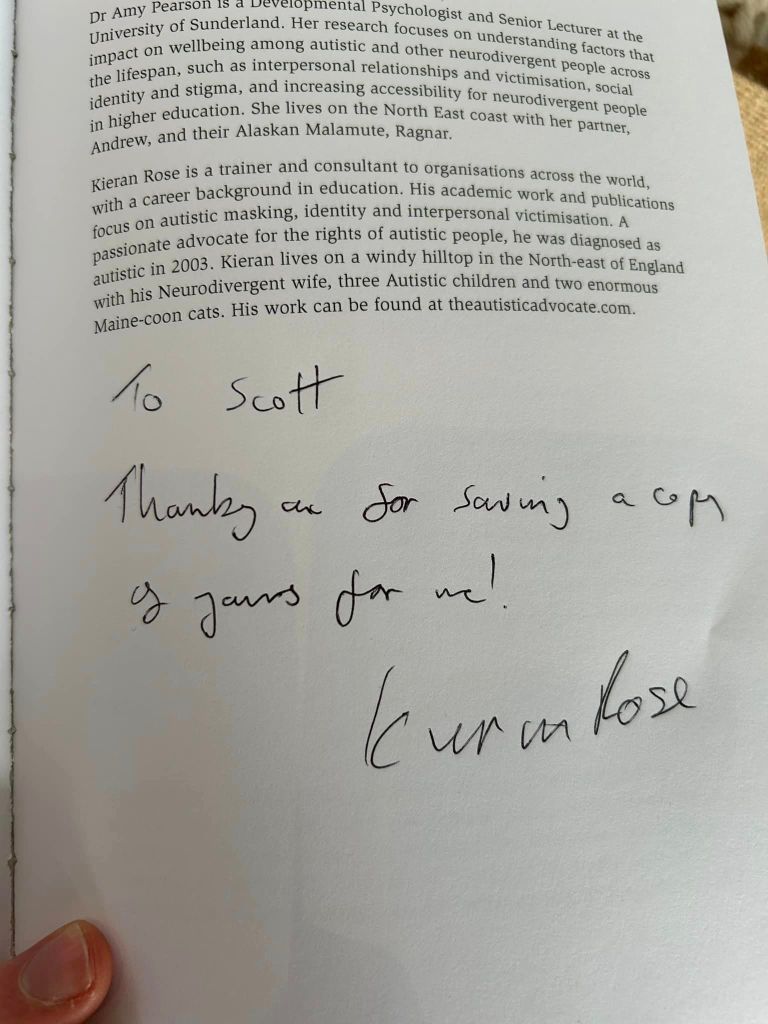 Dr Amy Pearson is a Developmental Psychologist and Senior Lecturer at the
University of Sunderland. Her research focuses on understanding factors that
impact on wellbeing among autistic and other neurodivergent people across
the lifespan, such as interpersonal relationships and victimisation, social
identity and stigma, and increasing accessibility for neurodivergent people
in higher education. She lives on the North East coast with her partner,
Andrew, and their Alaskan Malamute, Ragnar.
Kieran Rose is a trainer and consultant to organisations across the world,
with a career background in education. His academic work and publications
focus on autistic masking, identity and interpersonal victimisation. A
passionate advocate for the rights of autistic people, he was diagnosed as
autistic in 2003. Kieran lives on a windy hilltop in the North-east of England
with his Neurodivergent wife, three Autistic children and two enormous
Maine-coon cats. His work can be found at theautisticadvocate.com.
To Scott
Thankyou for saving a copy
of yours for me!
Kieran Rose